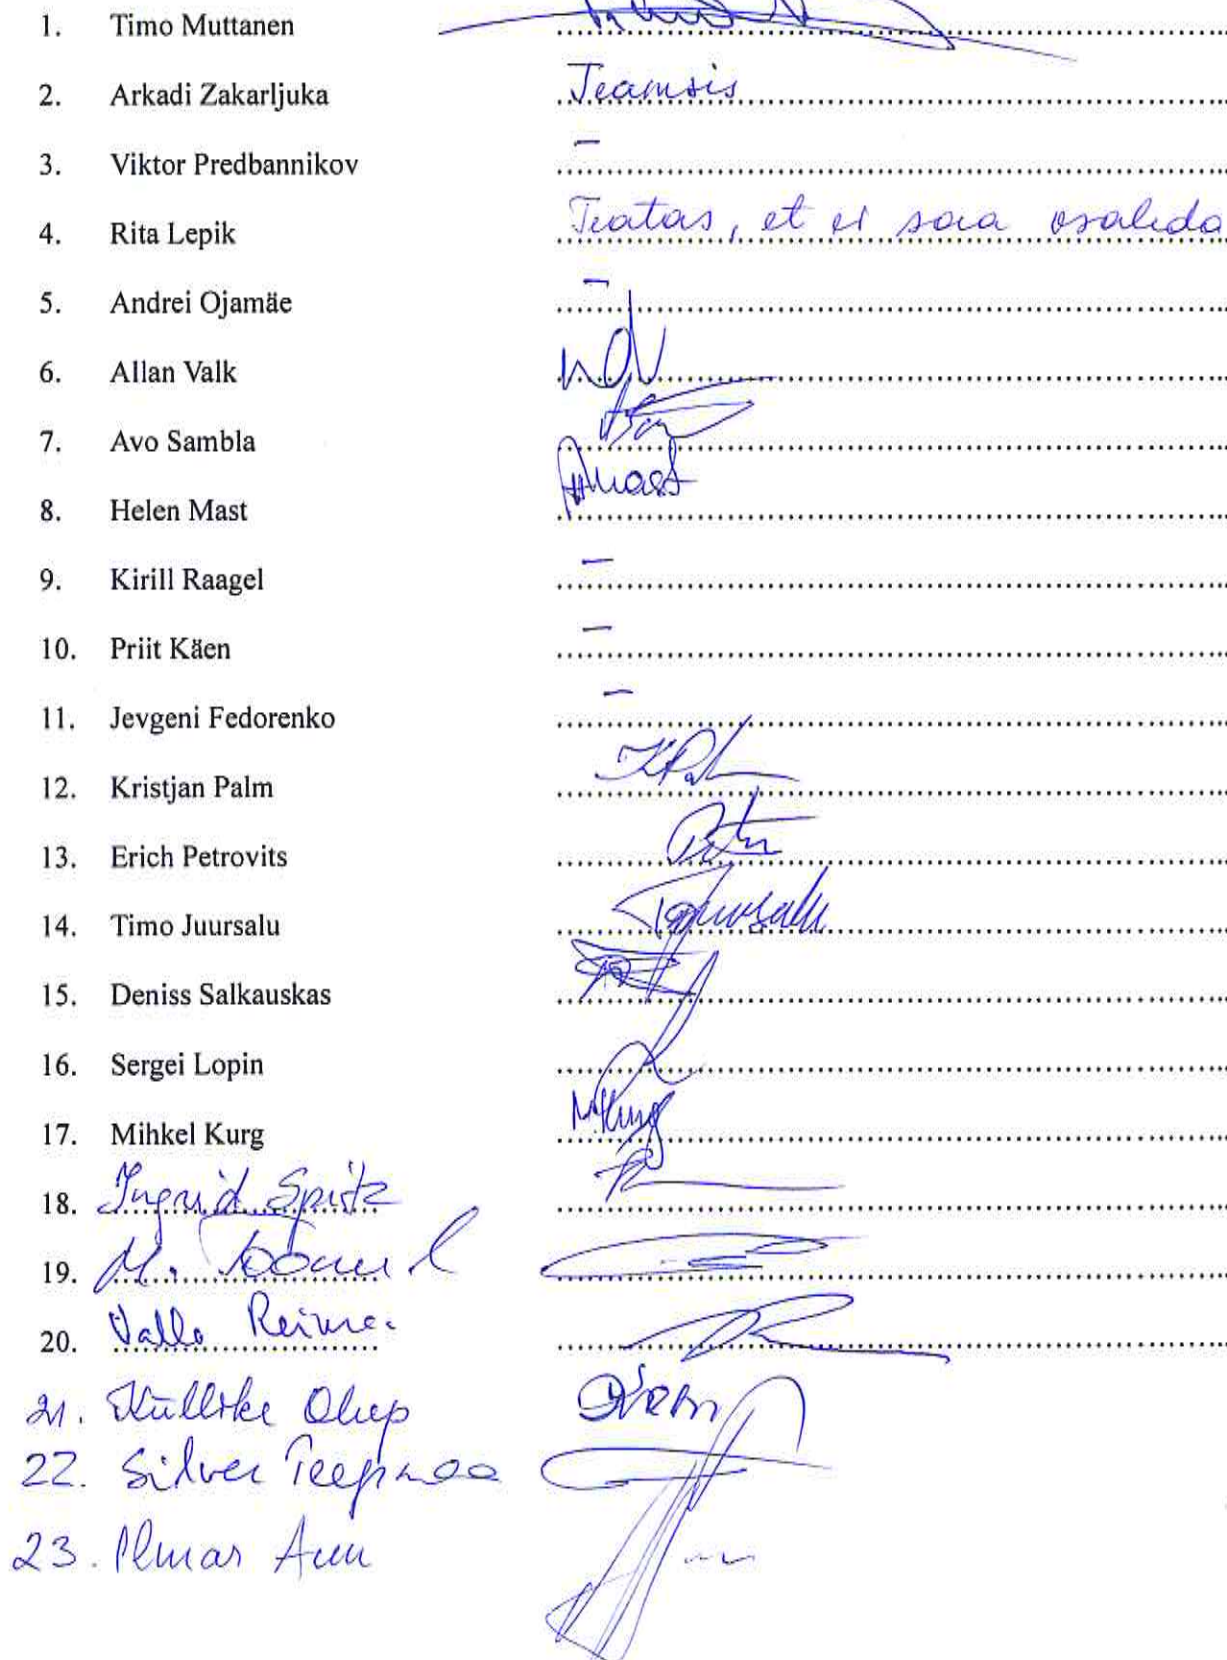 1. Timo Muttanen
2. Arkadi Zakarljuka Teamsis
3. Viktor Predbannikov –
4. Rita Lepik Teatas, et ei saa osaleda
5. Andrei Ojamäe –
6. Allan Valk
7. Avo Sambla
8. Helen Mast HMast
9. Kirill Raagel –
10. Priit Käen –
11. Jevgeni Fedorenko –
12. Kristjan Palm
13. Erich Petrovits
14. Timo Juursalu TJuursalu
15. Deniss Salkauskas
16. Sergei Lopin
17. Mihkel Kurg MKurg
18. Ingrid Spitz
19. M.
20. Vallo Reima
21. Küllike Olup
22. Silver Teepmaa
23. Ilmar Aun